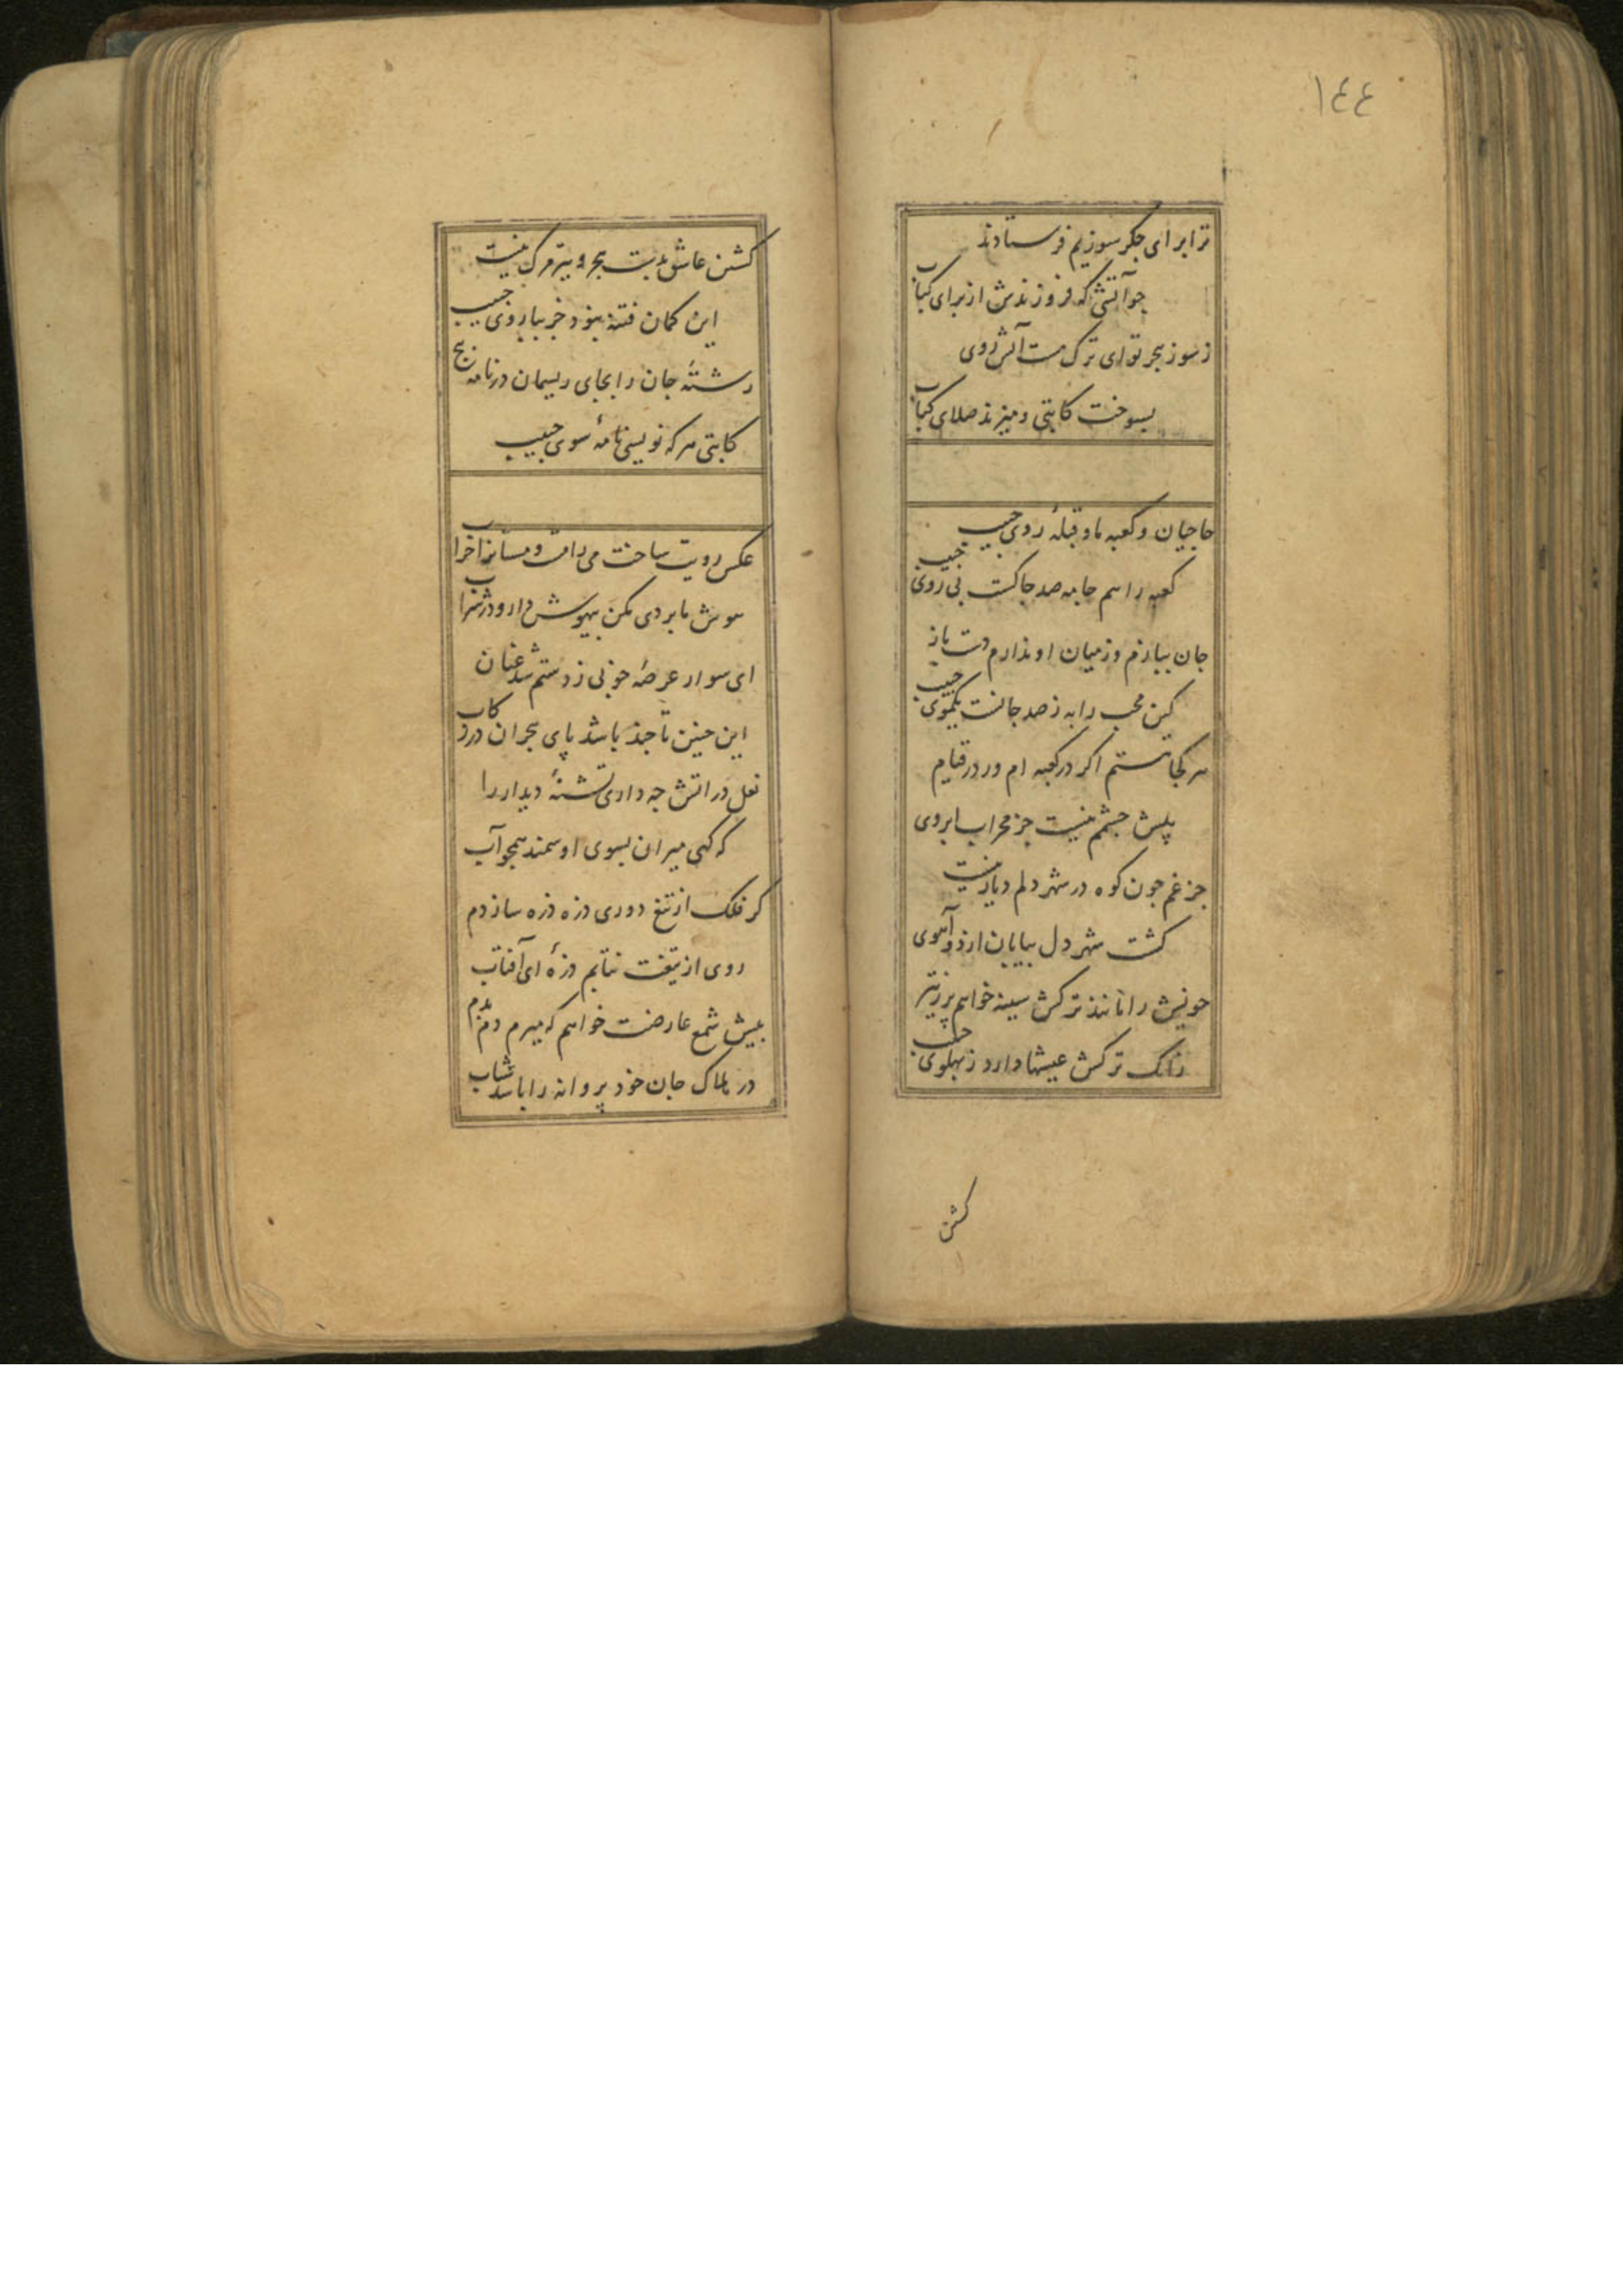 ١٤٤
ترا برای جکر سوزیم فرستادند
جو آتشی که فروزندش از برای کباب
ز سوز هجر تو ای ترک مست آتش روی
بسوخت کاتبی و میزند صلای کباب
حاجیان و کعبه ما و قبلهٔ روی حبیب
کعبه را هم جامه صد جاکست بی روی حبیب
جان ببازم وز میان او ندارم دست باز
کین محب را به ز صد جانست یکموی حبیب
هر کجا هستم اکر در کعبه ام ور در قیام
پیش جشمم نیست جز محراب ابروی
جز غم جون کوه در شهر دلم دیار نیست
کشت شهر دل بیابان ارزو آهوی
خویش را مانند ترکش سینه خواهم پر ز تیر
زانک ترکش عیشها دارد ز پهلوی حبیب
کشتن
کشتن عاشق بدست هجر و تیر مرک نیست
این کمان فتنه نبود جز ببازوی حبیب
رشتهٔ جان را بجای ریسمان در نامه پیچ
کاتبی هر که نویسی نامهٔ سوی حبیب
عکس رویت ساخت می را مست و مستانرا خراب
هوش ما بردی مکن بیهوش دارو در شراب
ای سوار عرصهٔ خوبی ز دستم شد عنان
این جنین تا جند باشد پای هجران در رکاب
نعل در اتش جه داری تشنهٔ دیدار را
که کهی میران بسوی او سمند همجو آب
کر فلک از تیغ دوری ذره ذره سازدم
روی از تیغت نتابم ذرهٔ ای آفتاب
پیش شمع عارضت خواهم که میرم دم بدم
در هلاک جان خود پروانه را باشد شتاب